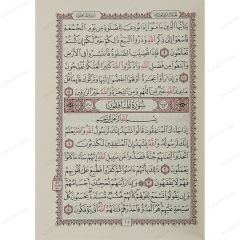 يَٰٓأَيُّهَا ٱلَّذِينَ ءَامَنُوٓا۟ إِذَا نُودِىَ لِلصَّلَوٰةِ مِن يَوْمِ ٱلْجُمُعَةِ
فَٱسْعَوْا۟ إِلَىٰ ذِكْرِ ٱللَّهِ وَذَرُوا۟ ٱلْبَيْعَ ذَٰلِكُمْ خَيْرٌ لَّكُمْ إِن كُنتُمْ
تَعْلَمُونَ ۝ فَإِذَا قُضِيَتِ ٱلصَّلَوٰةُ فَٱنتَشِرُوا۟ فِى ٱلْأَرْضِ
وَٱبْتَغُوا۟ مِن فَضْلِ ٱللَّهِ وَٱذْكُرُوا۟ ٱللَّهَ كَثِيرًا لَّعَلَّكُمْ تُفْلِحُونَ
۝ وَإِذَا رَأَوْا۟ تِجَٰرَةً أَوْ لَهْوًا ٱنفَضُّوٓا۟ إِلَيْهَا وَتَرَكُوكَ قَآئِمًا قُلْ مَا
عِندَ ٱللَّهِ خَيْرٌ مِّنَ ٱللَّهْوِ وَمِنَ ٱلتِّجَٰرَةِ وَٱللَّهُ خَيْرُ ٱلرَّٰزِقِينَ ۝
سُورَةُ المُنَافِقُونَ
بِسْمِ ٱللَّهِ ٱلرَّحْمَٰنِ ٱلرَّحِيمِ
إِذَا جَآءَكَ ٱلْمُنَٰفِقُونَ قَالُوا۟ نَشْهَدُ إِنَّكَ لَرَسُولُ ٱللَّهِ وَٱللَّهُ يَعْلَمُ
إِنَّكَ لَرَسُولُهُۥ وَٱللَّهُ يَشْهَدُ إِنَّ ٱلْمُنَٰفِقِينَ لَكَٰذِبُونَ ۝
ٱتَّخَذُوٓا۟ أَيْمَٰنَهُمْ جُنَّةً فَصَدُّوا۟ عَن سَبِيلِ ٱللَّهِ إِنَّهُمْ سَآءَ مَا كَانُوا۟
يَعْمَلُونَ ۝ ذَٰلِكَ بِأَنَّهُمْ ءَامَنُوا۟ ثُمَّ كَفَرُوا۟ فَطُبِعَ عَلَىٰ قُلُوبِهِمْ
فَهُمْ لَا يَفْقَهُونَ ۝ وَإِذَا رَأَيْتَهُمْ تُعْجِبُكَ أَجْسَامُهُمْ
وَإِن يَقُولُوا۟ تَسْمَعْ لِقَوْلِهِمْ كَأَنَّهُمْ خُشُبٌ مُّسَنَّدَةٌ يَحْسَبُونَ كُلَّ
صَيْحَةٍ عَلَيْهِمْ هُمُ ٱلْعَدُوُّ فَٱحْذَرْهُمْ قَٰتَلَهُمُ ٱللَّهُ أَنَّىٰ يُؤْفَكُونَ ۝